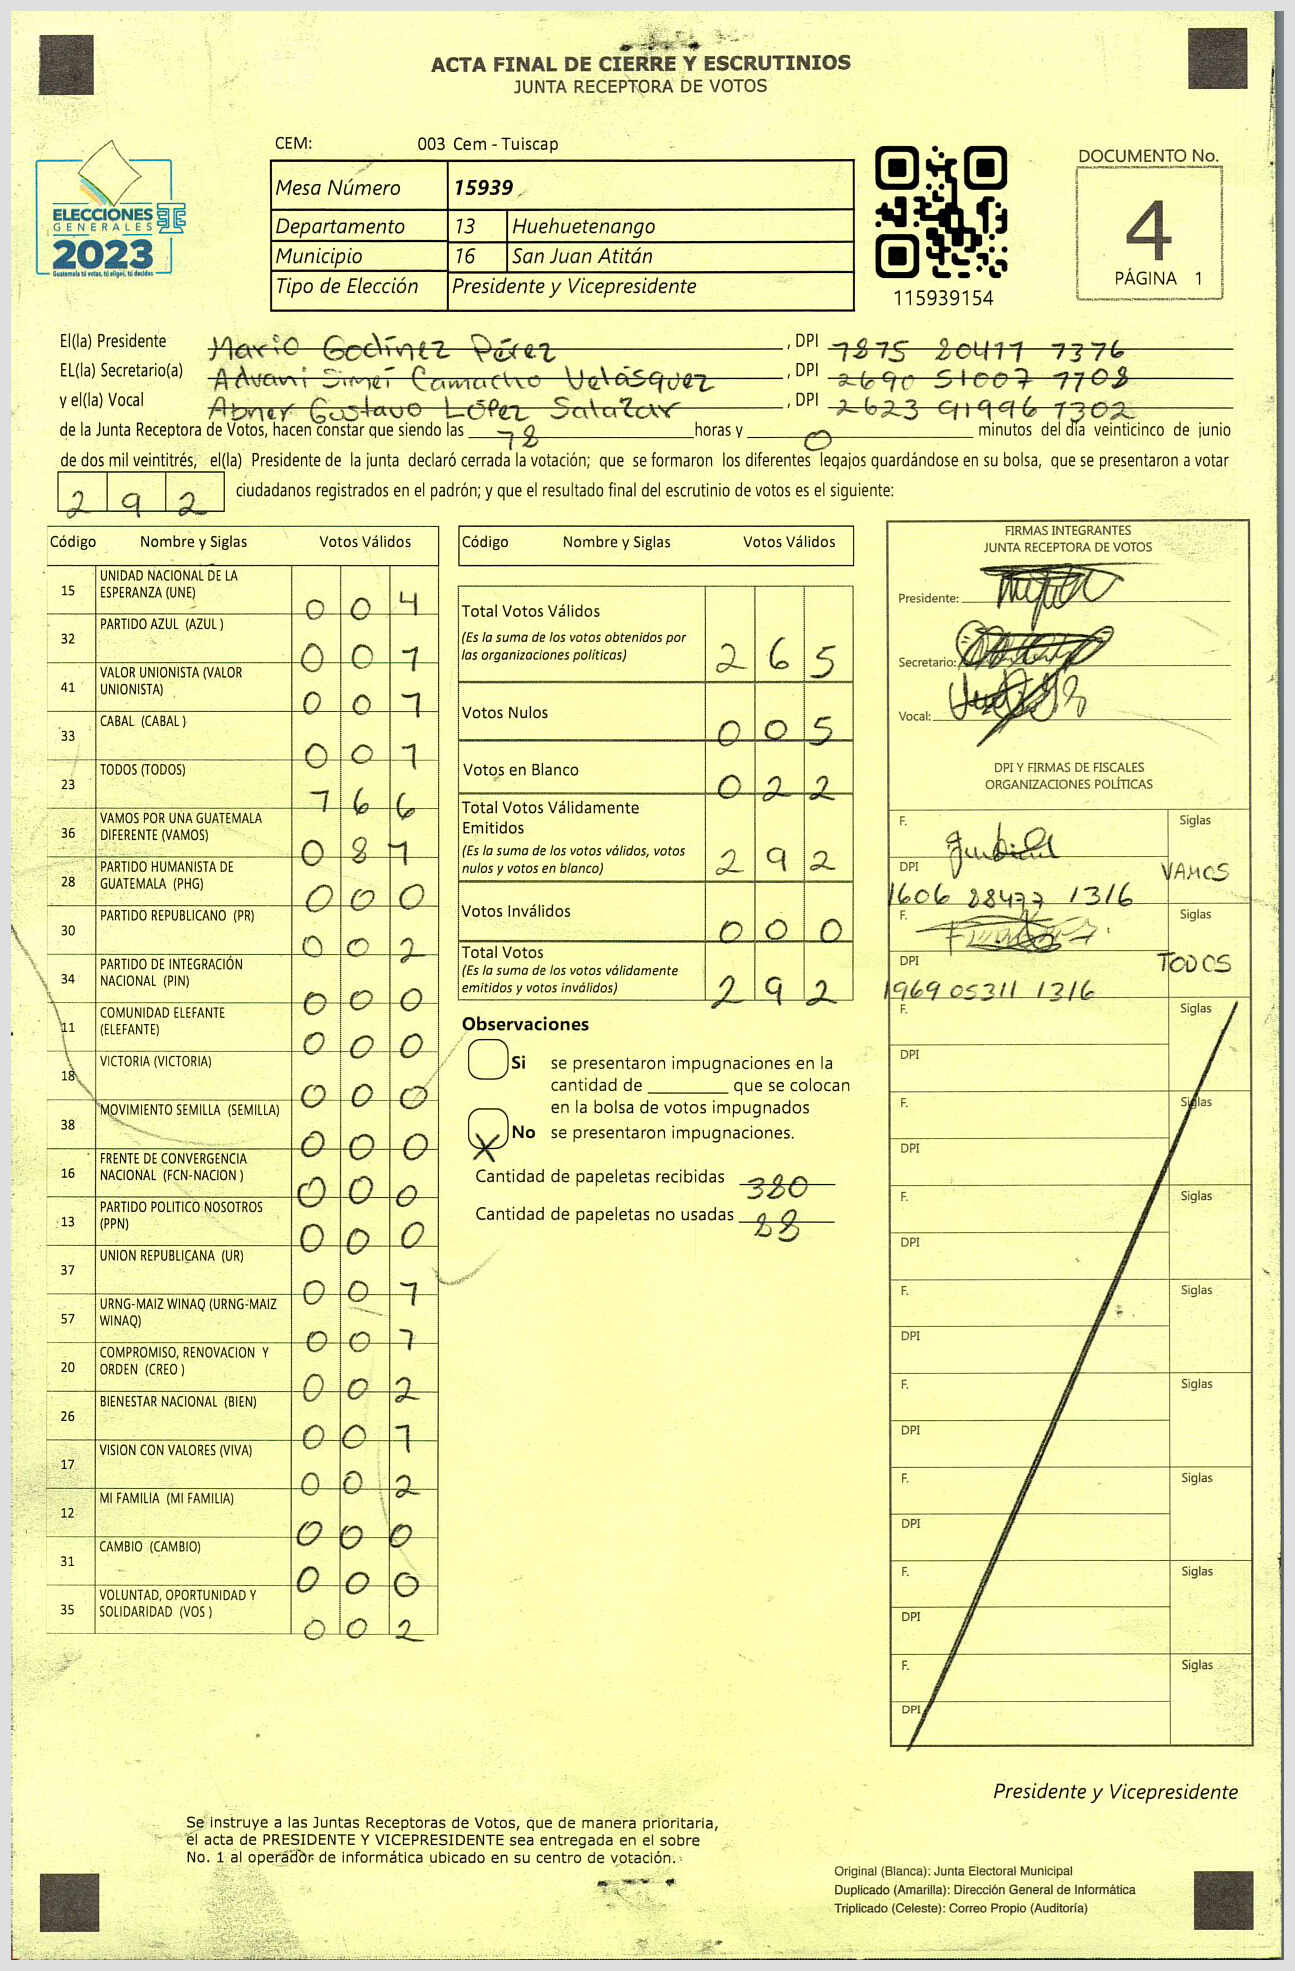 ACTA FINAL DE CIERRE Y ESCRUTINIOS
JUNTA RECEPTORA DE VOTOS
CEM: 003 Cem - Tuiscap
Mesa Número 15939
Departamento 13 Huehuetenango
Municipio 16 San Juan Atitán
Tipo de Elección Presidente y Vicepresidente
ELECCIONES
GENERALES
2023
Guatemala tú votas, tú eliges, tú decides
115939154
DOCUMENTO No.
4
PÁGINA 1
El(la) Presidente Mario Godínez Pérez , DPI 1875 20417 1316
EL(la) Secretario(a) Advani Simeí Camacho Velásquez , DPI 2690 51007 1708
y el(la) Vocal Abner Gustavo López Salazar , DPI 2623 91996 1302
de la Junta Receptora de Votos, hacen constar que siendo las 18 horas y 0 minutos del día veinticinco de junio
de dos mil veintitrés, el(la) Presidente de la junta declaró cerrada la votación; que se formaron los diferentes legajos guardándose en su bolsa, que se presentaron a votar
292 ciudadanos registrados en el padrón; y que el resultado final del escrutinio de votos es el siguiente:
Código Nombre y Siglas Votos Válidos
15 UNIDAD NACIONAL DE LA
ESPERANZA (UNE) 004
32 PARTIDO AZUL (AZUL ) 001
41 VALOR UNIONISTA (VALOR
UNIONISTA) 001
33 CABAL (CABAL ) 001
23 TODOS (TODOS) 166
36 VAMOS POR UNA GUATEMALA
DIFERENTE (VAMOS) 081
28 PARTIDO HUMANISTA DE
GUATEMALA (PHG) 000
30 PARTIDO REPUBLICANO (PR) 002
34 PARTIDO DE INTEGRACIÓN
NACIONAL (PIN) 000
11 COMUNIDAD ELEFANTE
(ELEFANTE) 000
18 VICTORIA (VICTORIA) 000
38 MOVIMIENTO SEMILLA (SEMILLA) 000
16 FRENTE DE CONVERGENCIA
NACIONAL (FCN-NACION ) 000
13 PARTIDO POLITICO NOSOTROS
(PPN) 000
37 UNION REPUBLICANA (UR) 001
57 URNG-MAIZ WINAQ (URNG-MAIZ
WINAQ) 001
20 COMPROMISO, RENOVACION Y
ORDEN (CREO ) 002
26 BIENESTAR NACIONAL (BIEN) 001
17 VISION CON VALORES (VIVA) 002
12 MI FAMILIA (MI FAMILIA) 000
31 CAMBIO (CAMBIO) 000
35 VOLUNTAD, OPORTUNIDAD Y
SOLIDARIDAD (VOS ) 002
Código Nombre y Siglas Votos Válidos
Total Votos Válidos 265
(Es la suma de los votos obtenidos por
las organizaciones políticas)
Votos Nulos 005
Votos en Blanco 022
Total Votos Válidamente
Emitidos
(Es la suma de los votos válidos, votos
nulos y votos en blanco) 292
Votos Inválidos 000
Total Votos
(Es la suma de los votos válidamente
emitidos y votos inválidos) 292
Observaciones
Si se presentaron impugnaciones en la
cantidad de ________ que se colocan
en la bolsa de votos impugnados
X No se presentaron impugnaciones.
Cantidad de papeletas recibidas 380
Cantidad de papeletas no usadas 88
FIRMAS INTEGRANTES
JUNTA RECEPTORA DE VOTOS
Presidente:
Secretario:
Vocal:
DPI Y FIRMAS DE FISCALES
ORGANIZACIONES POLÍTICAS
F. Siglas
DPI VAMOS
1606 28477 1316
F. Siglas
DPI TODOS
1969 05311 1316
F. Siglas
DPI
F. Siglas
DPI
F. Siglas
DPI
F. Siglas
DPI
F. Siglas
DPI
F. Siglas
DPI
F. Siglas
DPI
F. Siglas
DPI
Presidente y Vicepresidente
Se instruye a las Juntas Receptoras de Votos, que de manera prioritaria,
el acta de PRESIDENTE Y VICEPRESIDENTE sea entregada en el sobre
No. 1 al operador de informática ubicado en su centro de votación.
Original (Blanca): Junta Electoral Municipal
Duplicado (Amarilla): Dirección General de Informática
Triplicado (Celeste): Correo Propio (Auditoría)